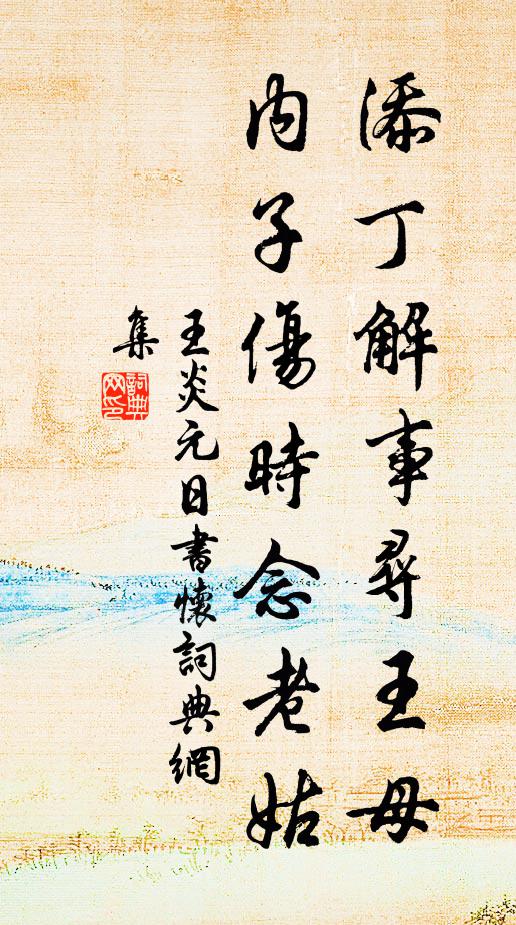 添丁解事尋王母
內子傷時念老姑
王炎元日書懷詞典網
集
詞典
网印